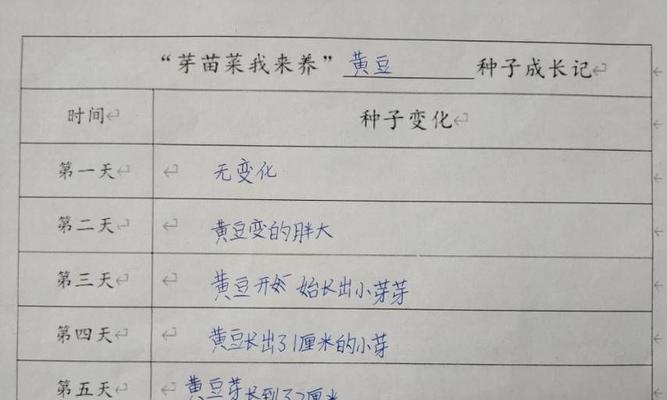 “芽苗菜我来养”黄豆 种子成长记
时间 种子变化
第一天 无变化
第二天 黄豆变的胖大
第三天 黄豆开始长出小芽芽
第四天 黄豆长出了1厘米的小芽
第五天 黄豆芽长到了2厘米